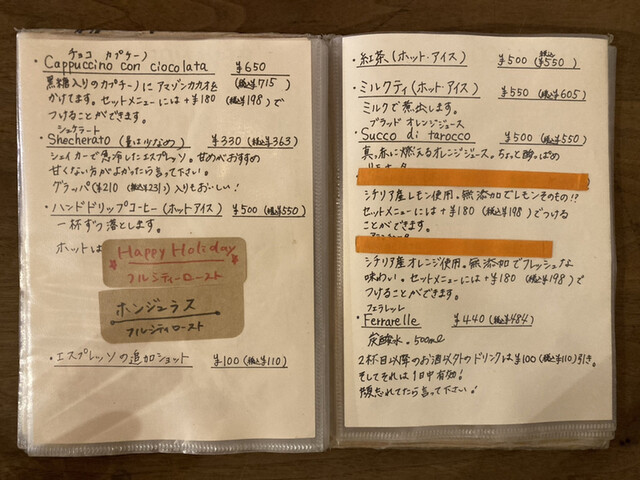 チョコ カプチーノ
・Cappuccino con ciocolata ¥650
黒糖入りのカプチーノにアマゾンカカオを (税込¥715)
かけます。セットメニューには+¥180 (税込¥198)で
つけることができます。
シェケラート
・Shecherato (量は少なめ) ¥330 (税込¥363)
シェイカーで急冷したエスプレッソ。甘めがおすすめ
甘くない方がよかったら言って下さい。
グラッパ(¥210 (税込231))入りもおいしい!
・ハンドドリップコーヒー(ホットアイス) ¥500 (税込¥550)
一杯ずつ落とします。
ホットは
Happy Holiday
フルシティーロースト
ホンジュラス
フルシティロースト
・エスプレッソの追加ショット ¥100 (税込¥110)
・紅茶(ホット・アイス) ¥500 (税込¥550)
・ミルクティ(ホット・アイス) ¥550 (税込¥605)
ミルクで煮出します。
ブラッド オレンジジュース
・Succo di tarocco ¥500 (税込¥550)
真っ赤に燃えるオレンジジュース。ちょっと酸っぱめ
シチリア産レモン使用。無添加でレモンそのもの!?
セットメニューには+¥180 (税込¥198)でつける
ことができます。
シチリア産オレンジ使用。無添加でフレッシュな
味わい。セットメニューには+¥180 (税込¥198)で
つけることができます。
フェラレッレ
・Ferrarelle ¥440 (税込¥484)
炭酸水。500ml
2杯目以降のお酒以外のドリンクは¥100 (税込¥110)引き。
そしてそれは1日中有効!
僕忘れてたら言って下さい!